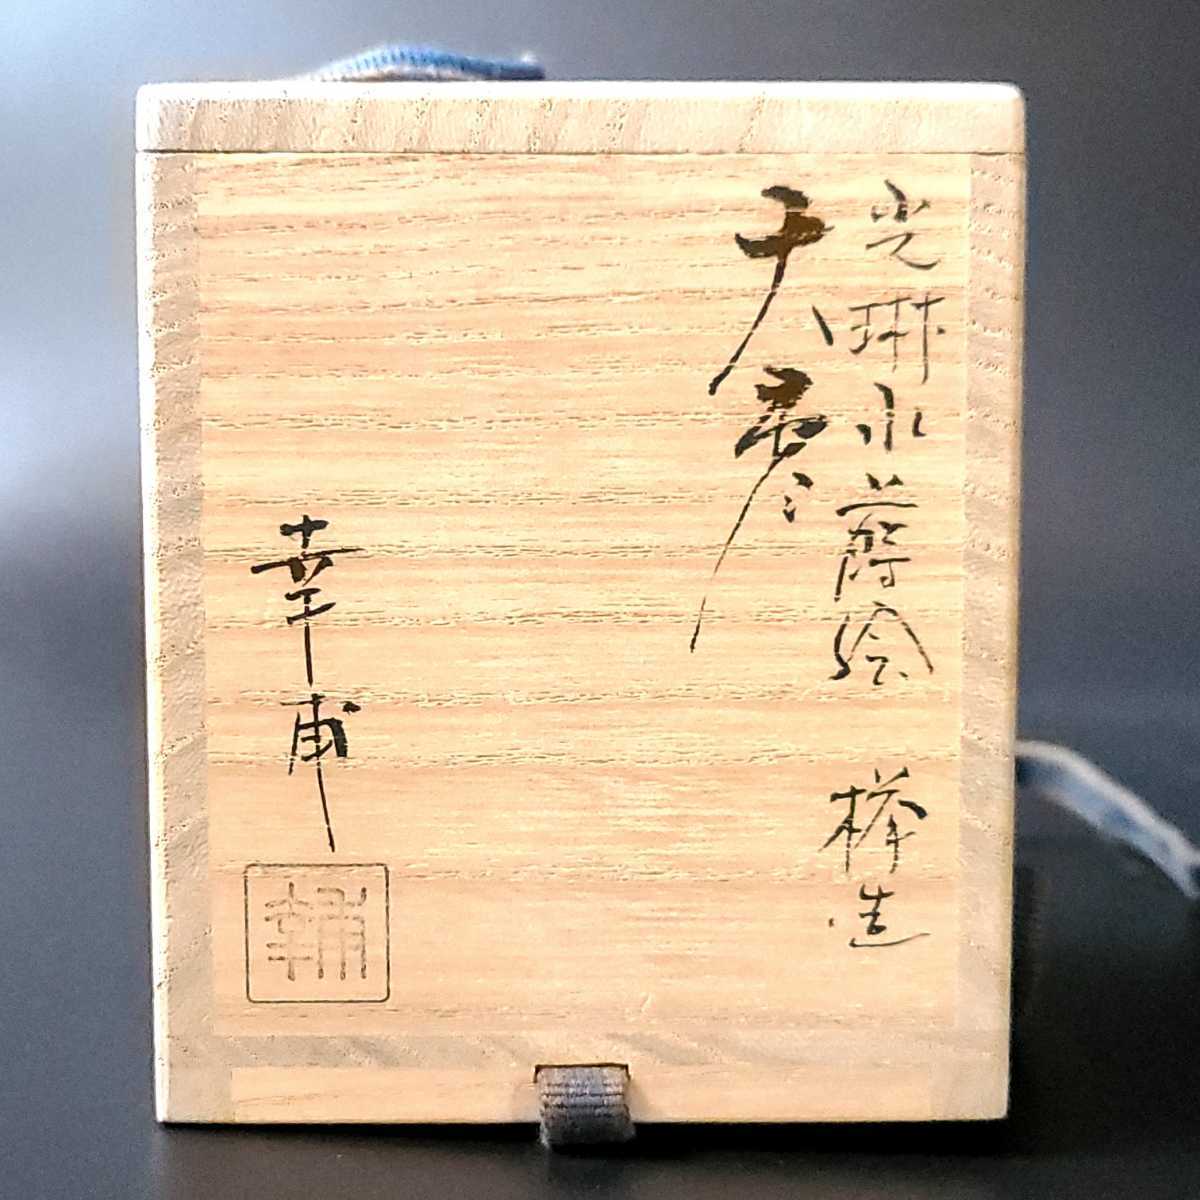 光琳水蒔絵 欅造
大棗
幸甫